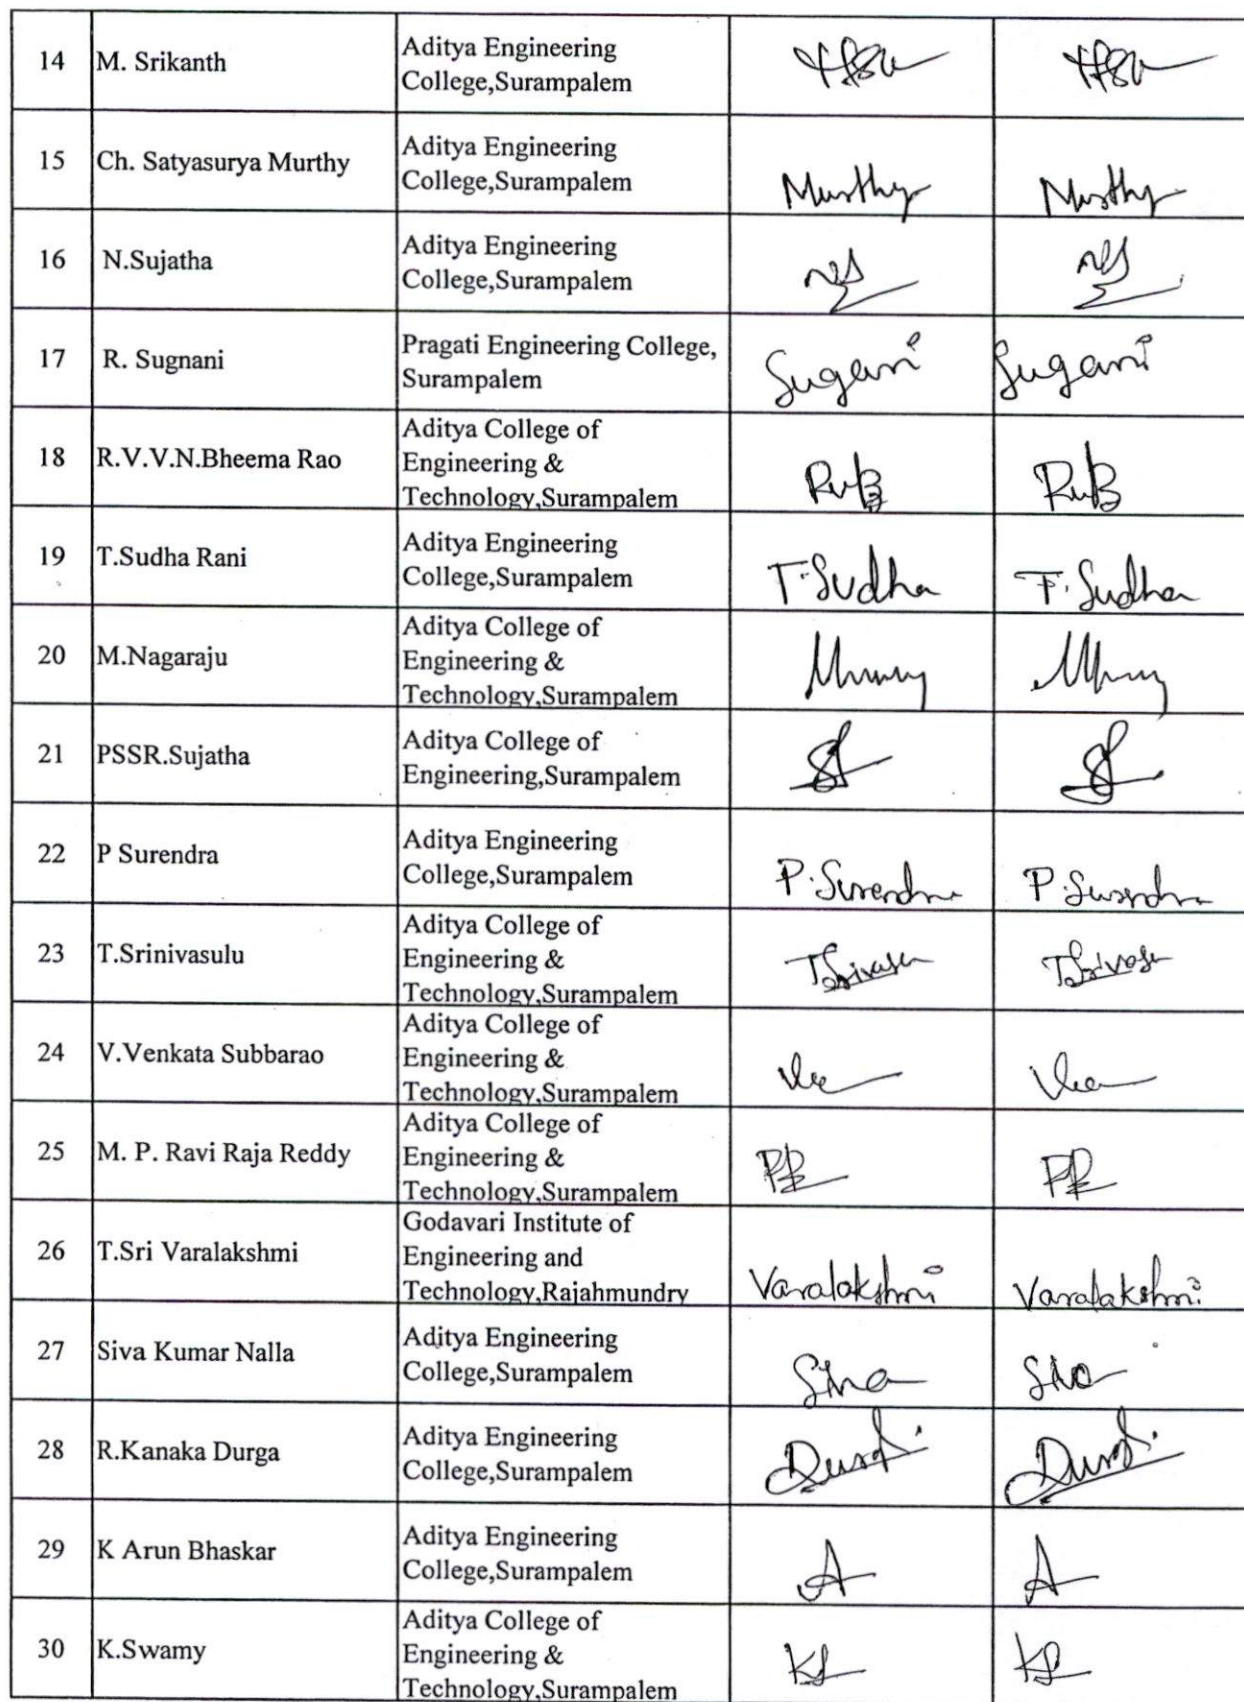 14 M. Srikanth Aditya Engineering
College,Surampalem
15 Ch. Satyasurya Murthy Aditya Engineering
College,Surampalem Murthy Murthy
16 N.Sujatha Aditya Engineering
College,Surampalem
17 R. Sugnani Pragati Engineering College,
Surampalem Sugani Sugani
18 R.V.V.N.Bheema Rao Aditya College of
Engineering &
Technology,Surampalem RvB RvB
19 T.Sudha Rani Aditya Engineering
College,Surampalem T.Sudha T.Sudha
20 M.Nagaraju Aditya College of
Engineering &
Technology,Surampalem
21 PSSR.Sujatha Aditya College of
Engineering,Surampalem
22 P Surendra Aditya Engineering
College,Surampalem P.Surendra P.Surendra
23 T.Srinivasulu Aditya College of
Engineering &
Technology,Surampalem
24 V.Venkata Subbarao Aditya College of
Engineering &
Technology,Surampalem
25 M. P. Ravi Raja Reddy Aditya College of
Engineering &
Technology,Surampalem
26 T.Sri Varalakshmi Godavari Institute of
Engineering and
Technology,Rajahmundry Varalakshmi Varalakshmi
27 Siva Kumar Nalla Aditya Engineering
College,Surampalem Siva Siva
28 R.Kanaka Durga Aditya Engineering
College,Surampalem
29 K Arun Bhaskar Aditya Engineering
College,Surampalem A A
30 K.Swamy Aditya College of
Engineering &
Technology,Surampalem